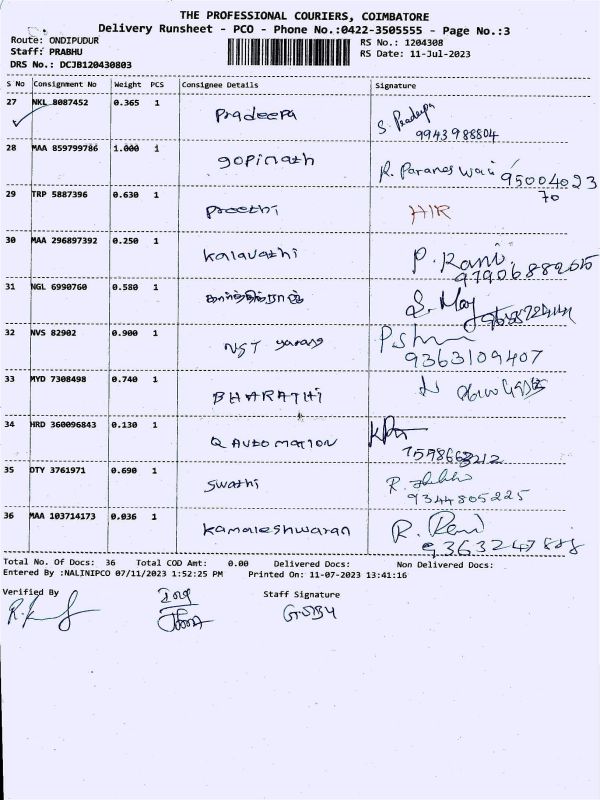 THE PROFESSIONAL COURIERS, COIMBATORE
Delivery Runsheet - PCO - Phone No.:0422-3505555 - Page No.:3
Route: ONDIPUDUR
RS No.: 1204308
Staff: PRABHU
RS Date: 11-Jul-2023
DRS No.: DCJB120430803
S No Consignment No Weight PCS Consignee Details Signature
27 NKL 8087452 0.365 1 Pradeepa S. Pradeepa
9943988804
28 MAA 859799786 1.000 1 gopinath R. Parameswari 95004023
70
29 TRP 5887396 0.630 1 Preethi H/R
30 MAA 296897392 0.250 1 Kalavathi P. Rani
31 NGL 6990760 0.580 1
32 NVS 82902 0.900 1 NST yarang
9363109407
33 MYD 7308498 0.740 1 BHARATHI
34 HRD 360096843 0.130 1 Q AUTOMATION
35 OTY 3761971 0.690 1 Swathi
9344805225
36 MAA 103714173 0.036 1 Kamaleshwaran R. Rani
Total No. Of Docs: 36 Total COD Amt: 0.00 Delivered Docs: Non Delivered Docs:
Entered By :NALINIPCO 07/11/2023 1:52:25 PM Printed On: 11-07-2023 13:41:16
Verified By Staff Signature